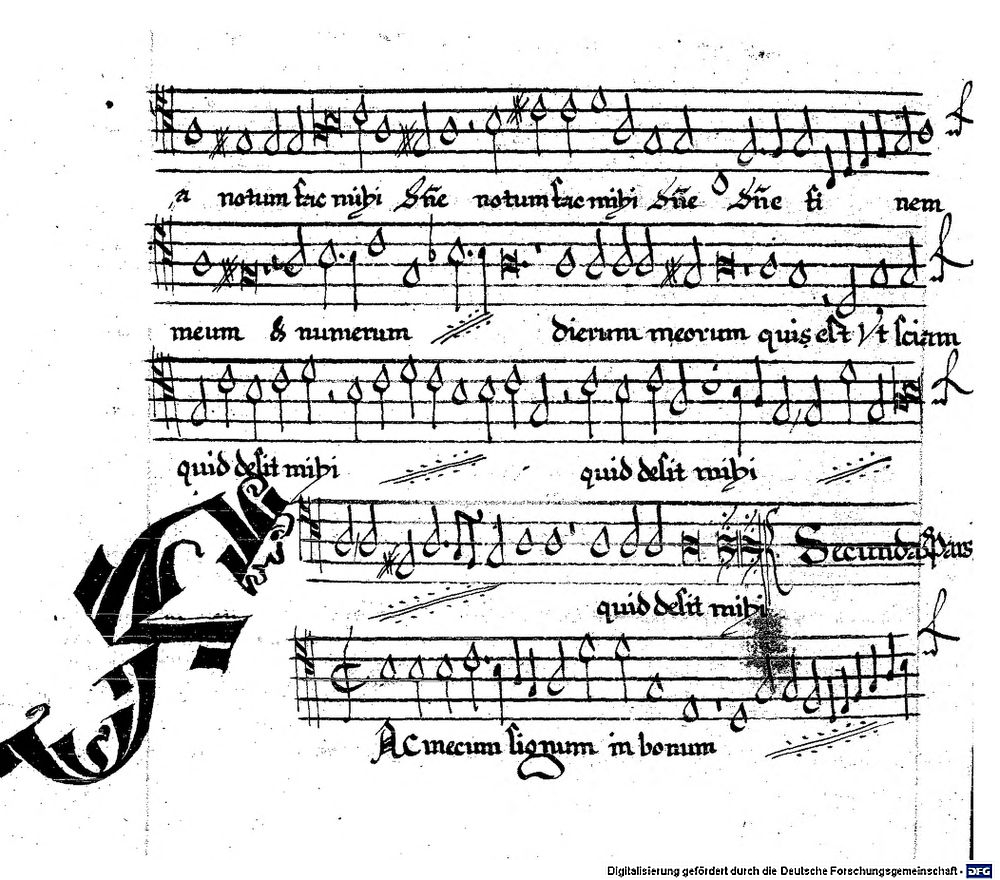 a notum fac mihi Dñe notum fac mihi Dñe Dñe fi nem
meum & numerum dierum meorum quis est Vt sciam
quid desit mihi quid desit mihi
Secunda Pars
quid desit mihi
FAC mecum signum in bonum
Digitalisierung gefördert durch die Deutsche Forschungsgemeinschaft - DFG